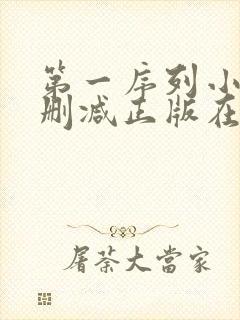 第一序列小
删减正版在
屠荼大當家